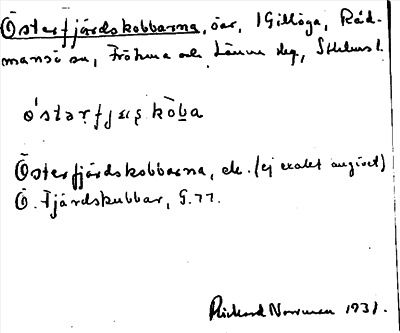 Österfjärdskobbarna, öar, i Gillöga, Råd-
mansö sn, Frötuna och Länna skg, Sthlms l.
ö́stərfjæṣkòba
Österfjärdskobbarna, ek. (ej exakt angivet)
Ö. Fjärdskubbar, G.77.
Rickard Norrman 1931.